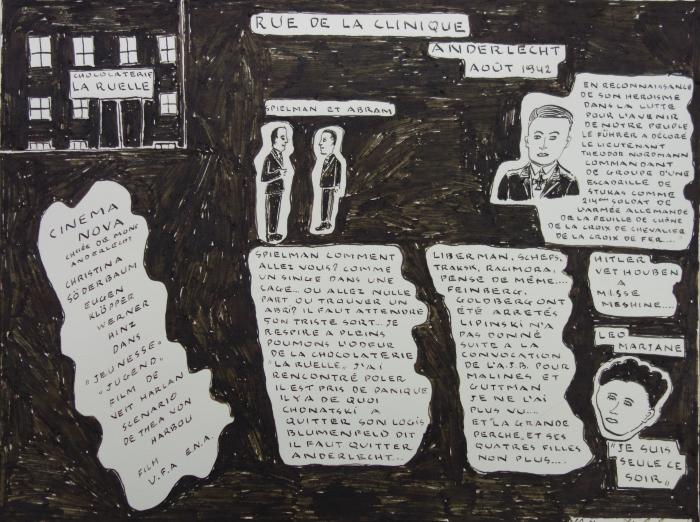 CHOCOLATERIE
LA RUELLE
RUE DE LA CLINIQUE
ANDERLECHT
AOÛT 1942
SPIELMAN ET ABRAM
EN RECONNAISSANCE
DE SON HEROISME
DANS LA LUTTE
POUR L'AVENIR
DE NOTRE PEUPLE
LE FÜHRER A DÉCORÉ
LE LIEUTENANT
THEODOR NORDMANN
COMMANDANT
DE GROUPE D'UNE
ESCADRILLE DE
STUKAS COMME
214ème SOLDAT DE
L'ARMÉE ALLEMANDE
DE LA FEUILLE DE CHÊNE
DE LA CROIX DE CHEVALIER
DE LA CROIX DE FER....
CINEMA
NOVA
CHSÉE DE MONS
ANDERLECHT
CHRISTINA
SÖDERBAUM
EUGEN
KLÖPPER
WERNER
HINZ
DANS
"JEUNESSE"
"JUGEND"
FILM DE
VEIT HARLAN
SCENARIO
DE THEA VON
HARBOU
FILM
U.F.A E.N.A.
SPIELMAN COMMENT
ALLEZ VOUS? COMME
UN SINGE DANS UNE
CAGE... OU ALLEZ NULLE
PART OU TROUVER UN
ABRI? IL FAUT ATTENDRE
SON TRISTE SORT... JE
RESPIRE A PLEINS
POUMONS L'ODEUR
DE LA CHOCOLATERIE
"LA RUELLE" J'AI
RENCONTRÉ POLER
IL EST PRIS DE PANIQUE
IL Y A DE QUOI
CHONATSKI A
QUITTER SON LOGIS
BLUMENFELD DIT
IL FAUT QUITTER
ANDERLECHT...
LIBERMAN, SCHEPS,
TRAKSK, RACIMORA,
PENSE DE MÊME....
FEINBERG,
GOLDBERG ONT
ÉTÉ ARRETÉS
LIPINSKI N'A
PAS DONNÉ
SUITE A LA
CONVOCATION
DE L'A.J.B. POUR
MALINES ET
GUTTMAN
JE NE L'AI
PLUS VU....
ET LA GRANDE
PERCHE, ET SES
QUATRES FILLES
NON PLUS....
HITLER
VET HOUBEN
A
MISSE
MESHINE...
LEO
MARJANE
"JE SUIS
SEULE CE
SOIR"